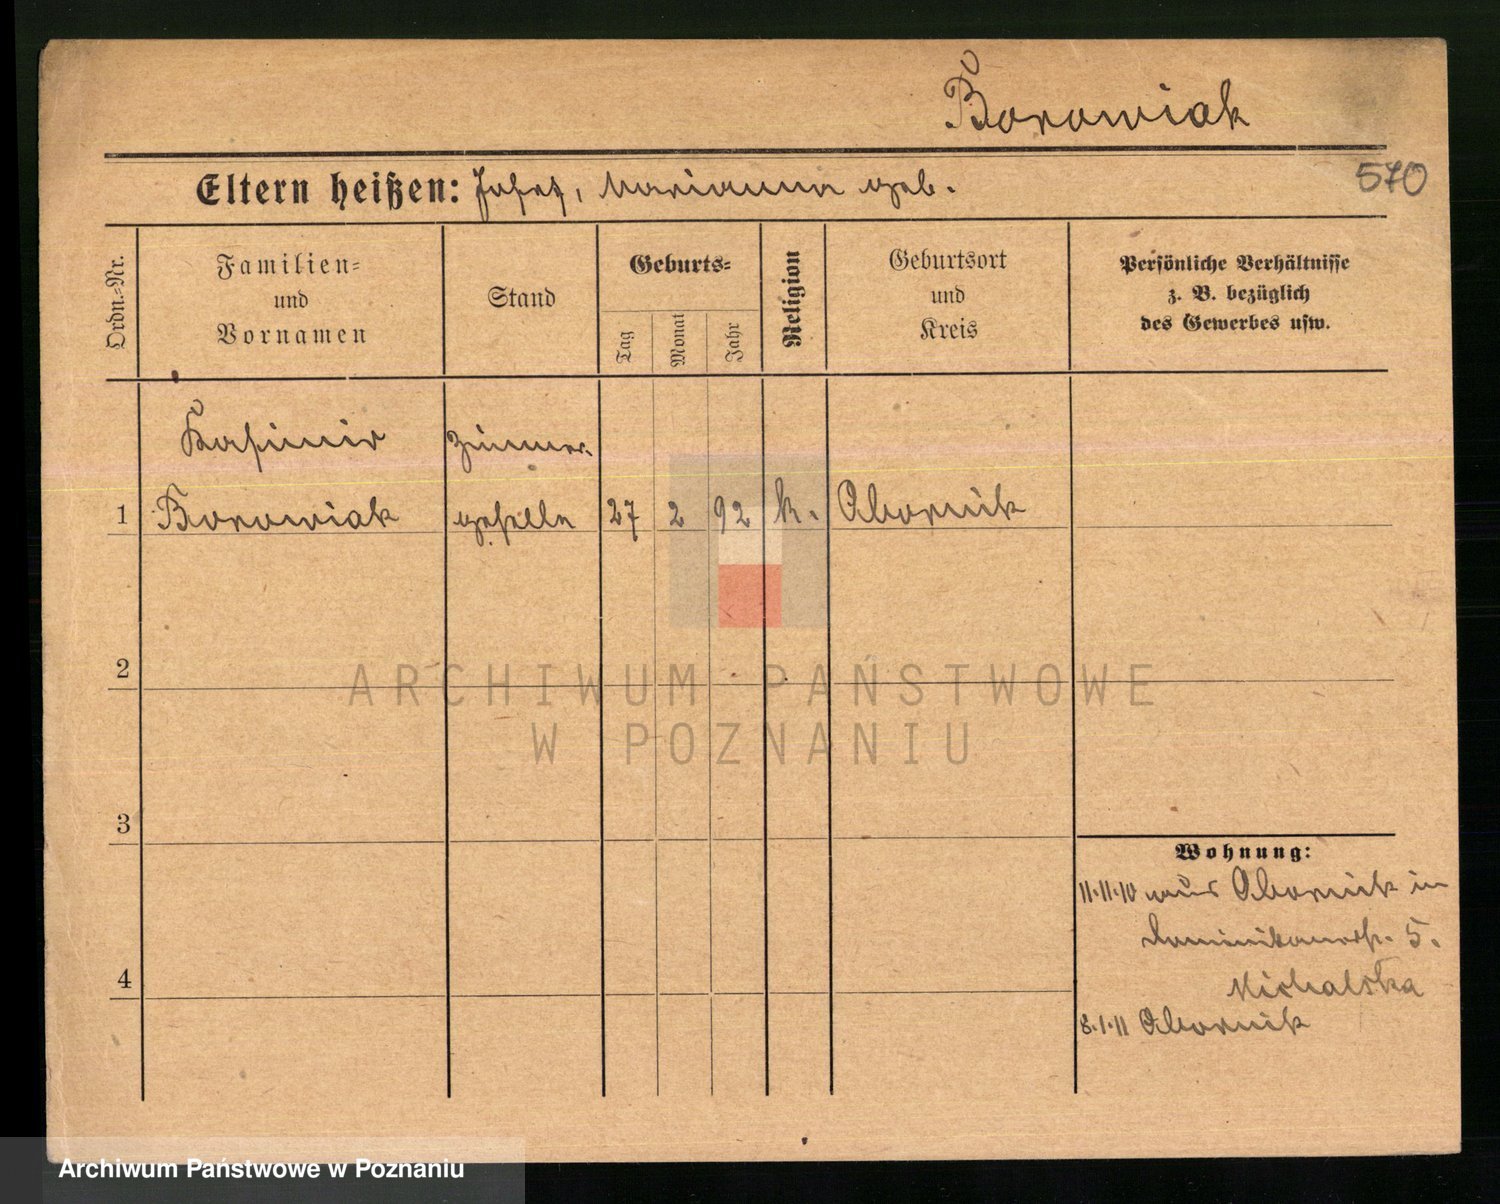 Borowiak
570
Eltern heißen: Josef, Marianna geb.
Ordn.-Nr.
Familien-
und
Vornamen
Stand
Geburts-
Tag
Monat
Jahr
Religion
Geburtsort
und
Kreis
Persönliche Verhältnisse
z. B. bezüglich
des Gewerbes usw.
Kasimir Zimmer-
1 Borowiak geselle 27 2 92 k. Obornik
2
ARCHIWUM PAŃSTWOWE
W POZNANIU
3
Wohnung:
11.11.10 aus Obornik in
Dominikanerstr. 5.
4
Michalska
8.1.11 Obornik
Archiwum Państwowe w Poznaniu